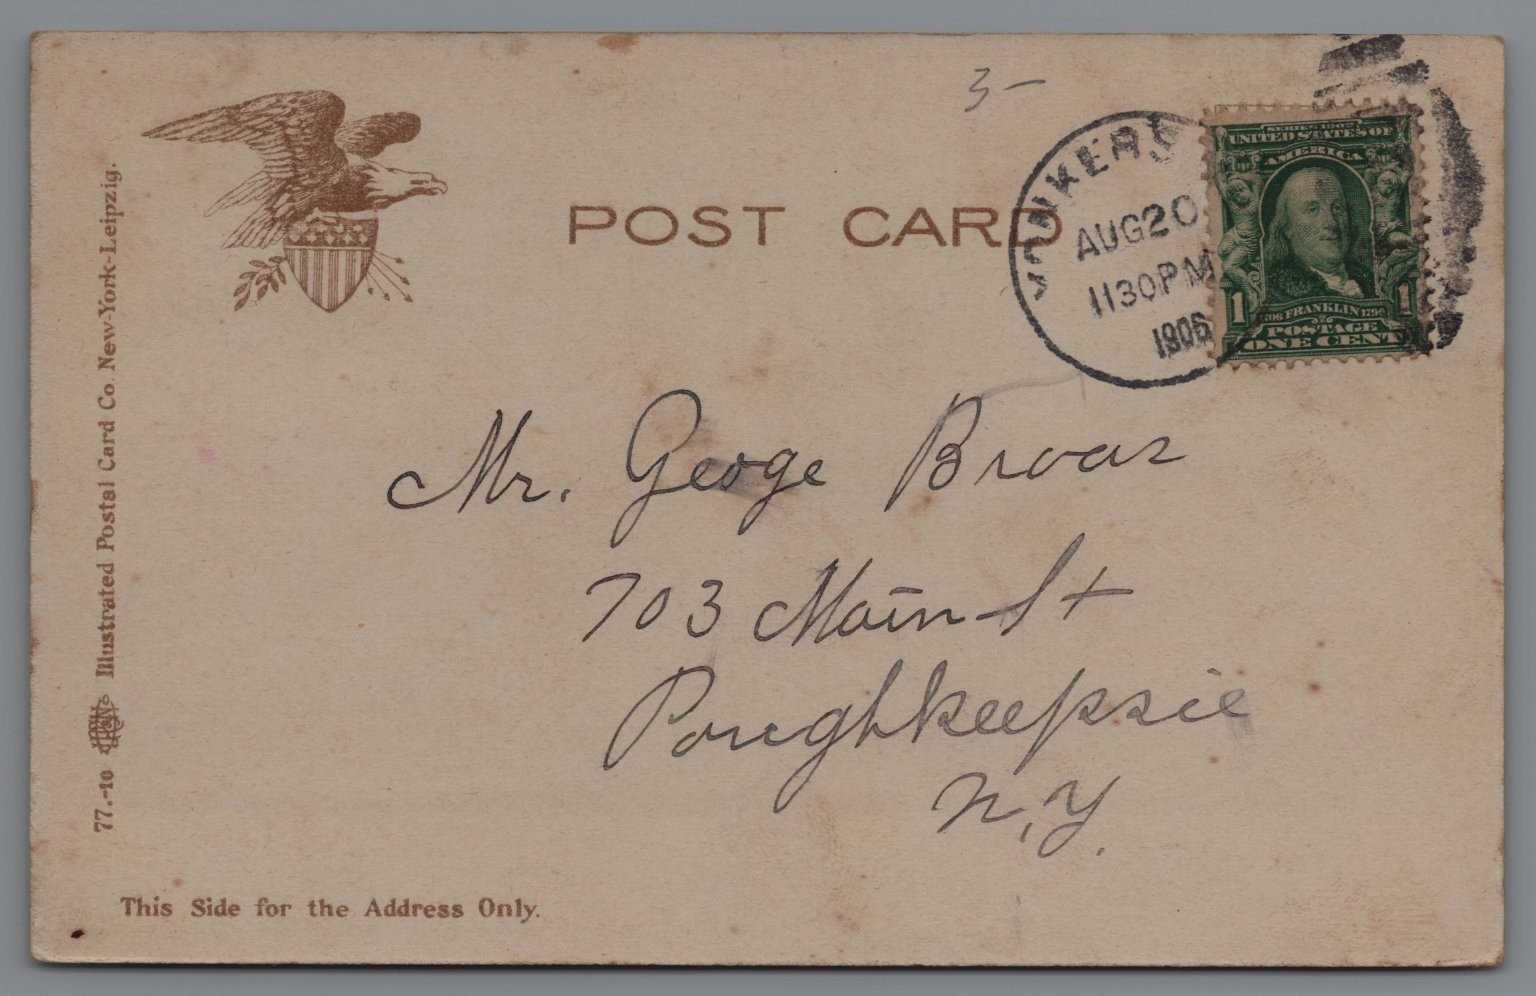 3-
POST CARD
YONKERS
AUG 20
1130 PM
1906
SERIES 1902
UNITED STATES OF
AMERICA
1 1
1706 FRANKLIN 1790
POSTAGE
ONE CENT
Mr. George Broas
703 Main St
Poughkeepsie
N.Y.
77.-10 Illustrated Postal Card Co. New-York-Leipzig.
This Side for the Address Only.